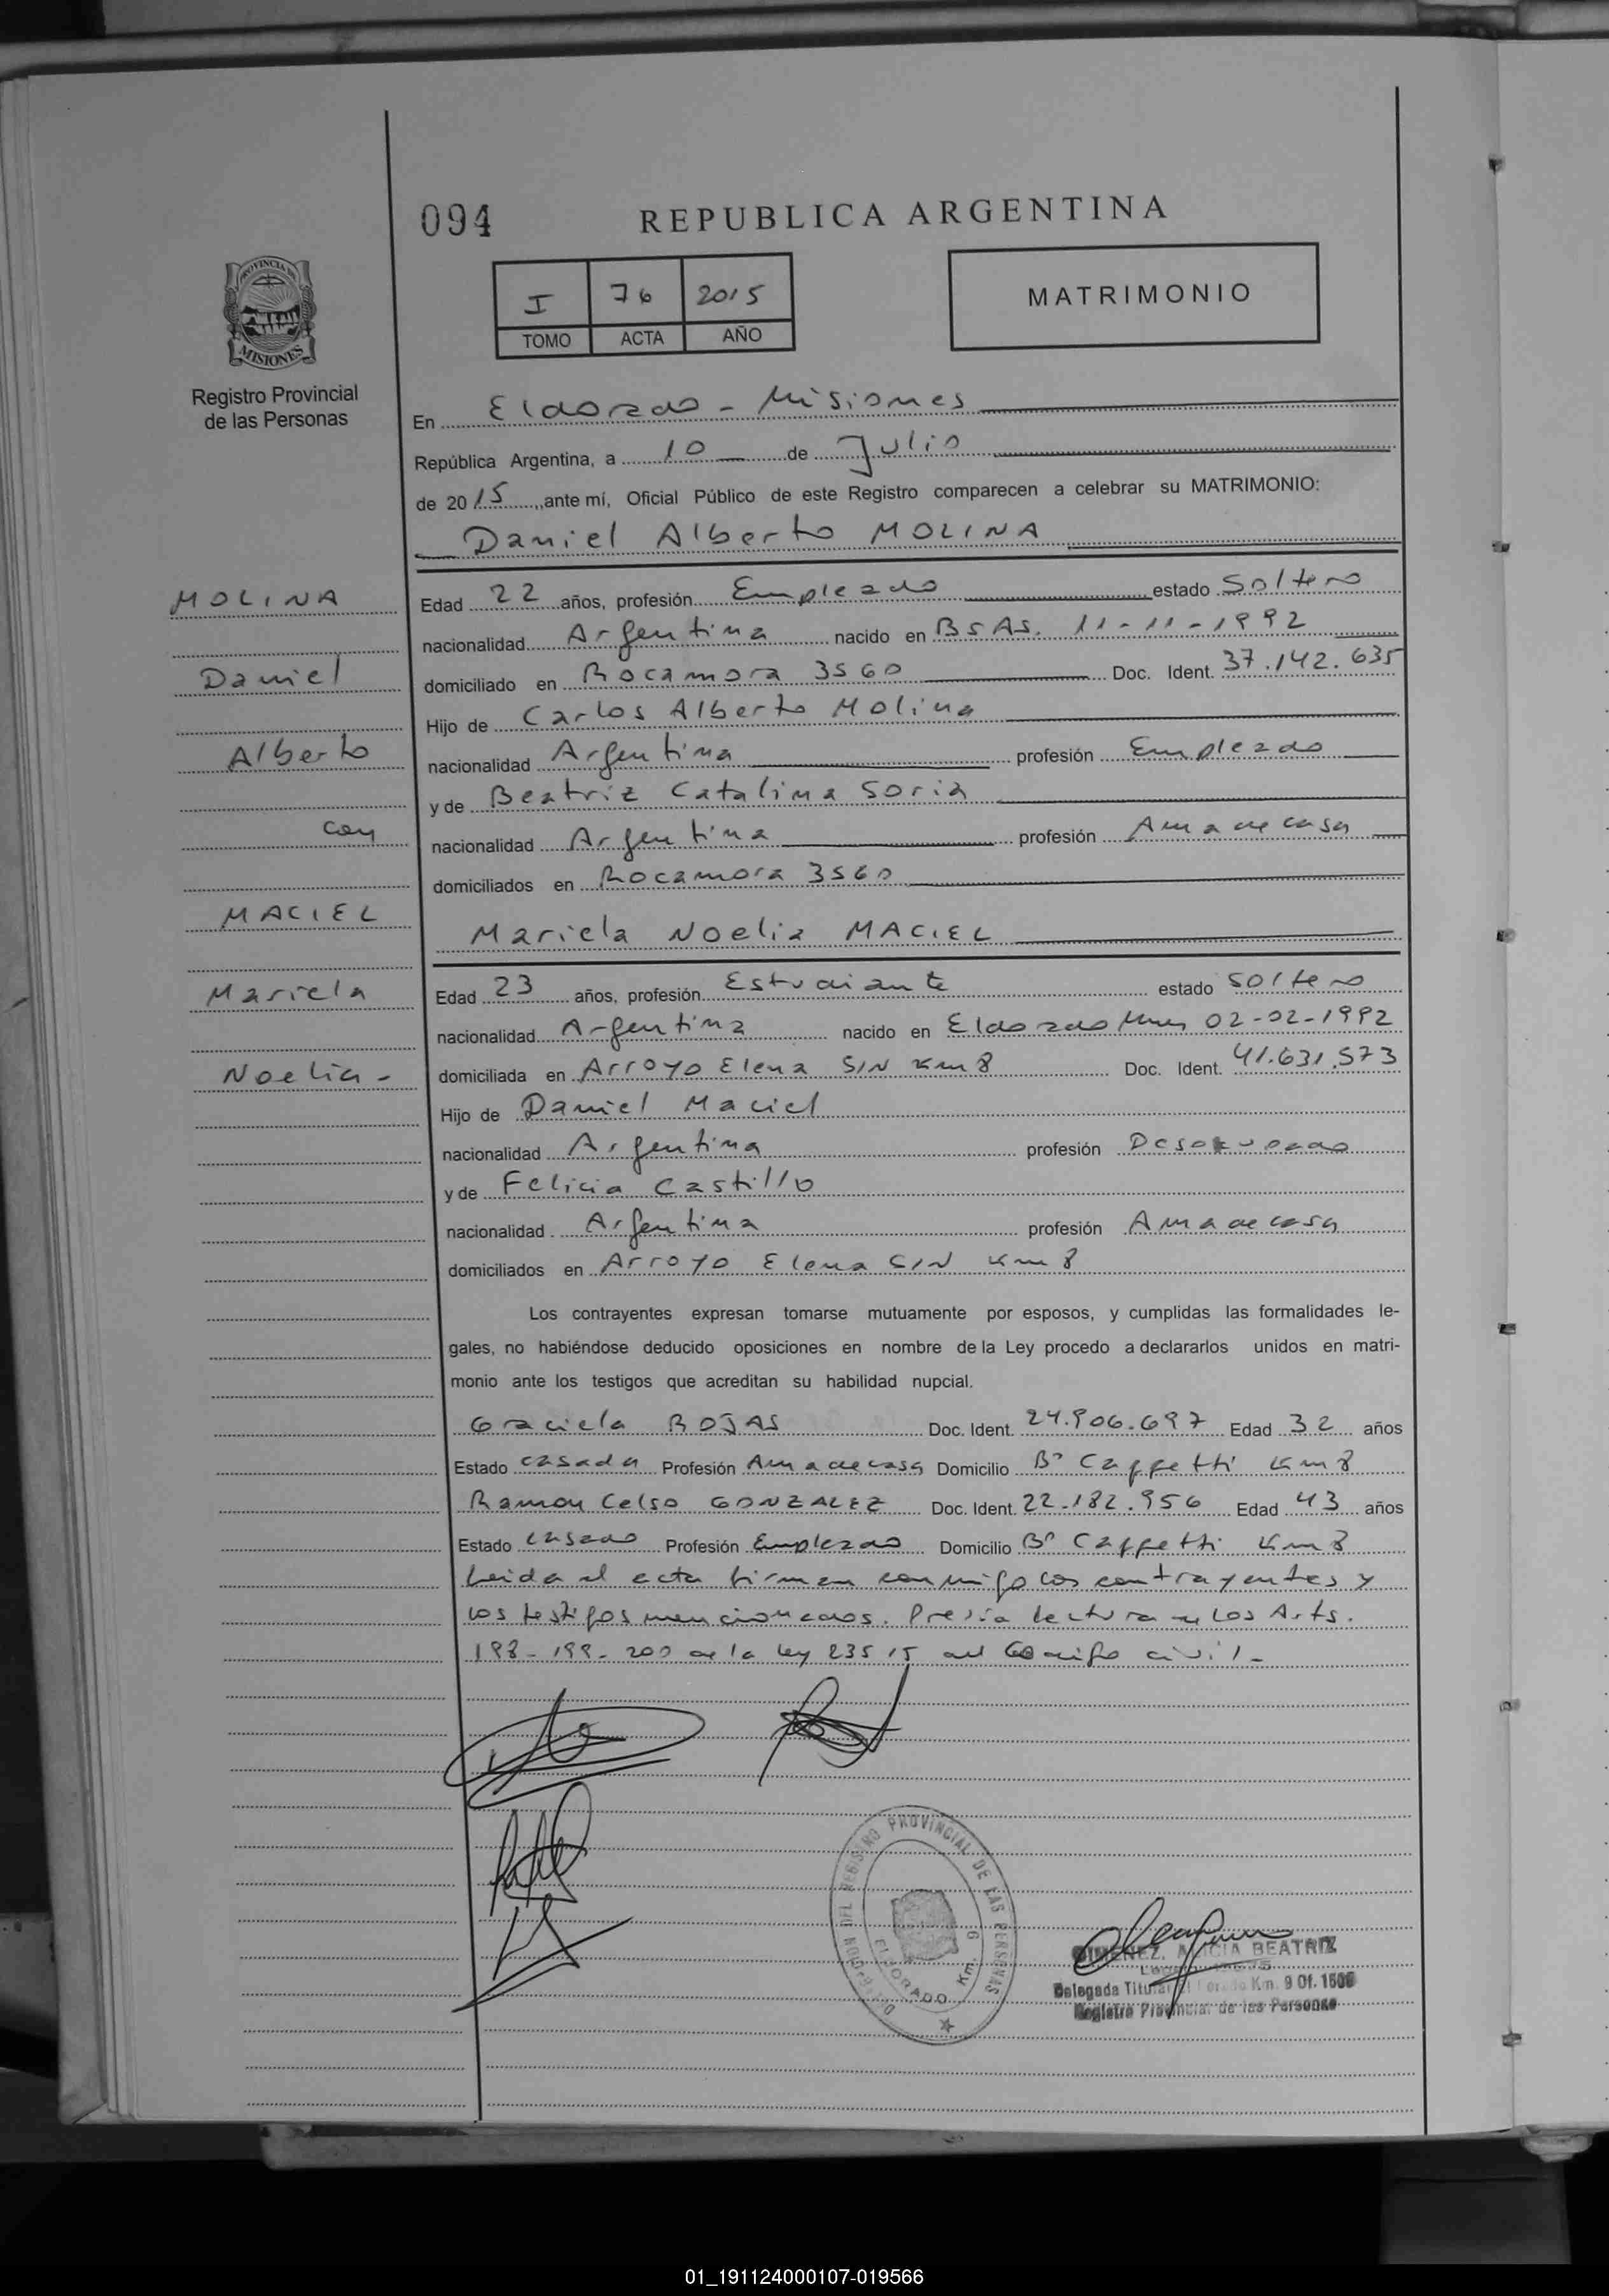 094
REPUBLICA ARGENTINA
PROVINCIA DE
MISIONES
I 76 2015
TOMO ACTA AÑO
MATRIMONIO
Registro Provincial
de las Personas
En Eldorado - Misiones
República Argentina, a 10 de Julio
de 2015, ante mí, Oficial Público de este Registro comparecen a celebrar su MATRIMONIO:
Daniel Alberto MOLINA
MOLINA
Daniel
Alberto
con
MACIEL
Mariela
Noelia -
Edad 22 años, profesión Empleado estado Soltero
nacionalidad Argentina nacido en Bs As. 11-11-1992
domiciliado en Rocamora 3560 Doc. Ident. 37.142.635
Hijo de Carlos Alberto Molina
nacionalidad Argentina profesión Empleado
y de Beatriz Catalina Soria
nacionalidad Argentina profesión Ama de casa
domiciliados en Rocamora 3560
Mariela Noelia MACIEL
Edad 23 años, profesión Estudiante estado soltero
nacionalidad Argentina nacido en Eldorado Mnes 02-02-1992
domiciliada en Arroyo Elena S/N Km 8 Doc. Ident. 41.631.573
Hijo de Daniel Maciel
nacionalidad Argentina profesión Desocupado
y de Felicia Castillo
nacionalidad Argentina profesión Ama de casa
domiciliados en Arroyo Elena S/N Km 8
Los contrayentes expresan tomarse mutuamente por esposos, y cumplidas las formalidades le-
gales, no habiéndose deducido oposiciones en nombre de la Ley procedo a declararlos unidos en matri-
monio ante los testigos que acreditan su habilidad nupcial.
Graciela ROJAS Doc. Ident. 24.906.697 Edad 32 años
Estado casada Profesión Ama de casa Domicilio B° Cappetti Km 8
Ramon Celso GONZALEZ Doc. Ident. 22.182.956 Edad 43 años
Estado casado Profesión Empleado Domicilio B° Cappetti Km 8
Leida el acta firman conmigo los contrayentes y
los testigos mencionados. Previa lectura de los Arts.
198-199-200 de la ley 23515 del Codigo civil-
DELEGACION DEL REGISTRO PROVINCIAL DE LAS PERSONAS
ELDORADO Km.
GIMENEZ, ALICIA BEATRIZ
Delegada Titular Eldorado Km. 9 Of.
Registro Provincial de las Personas
01_191124000107-019566